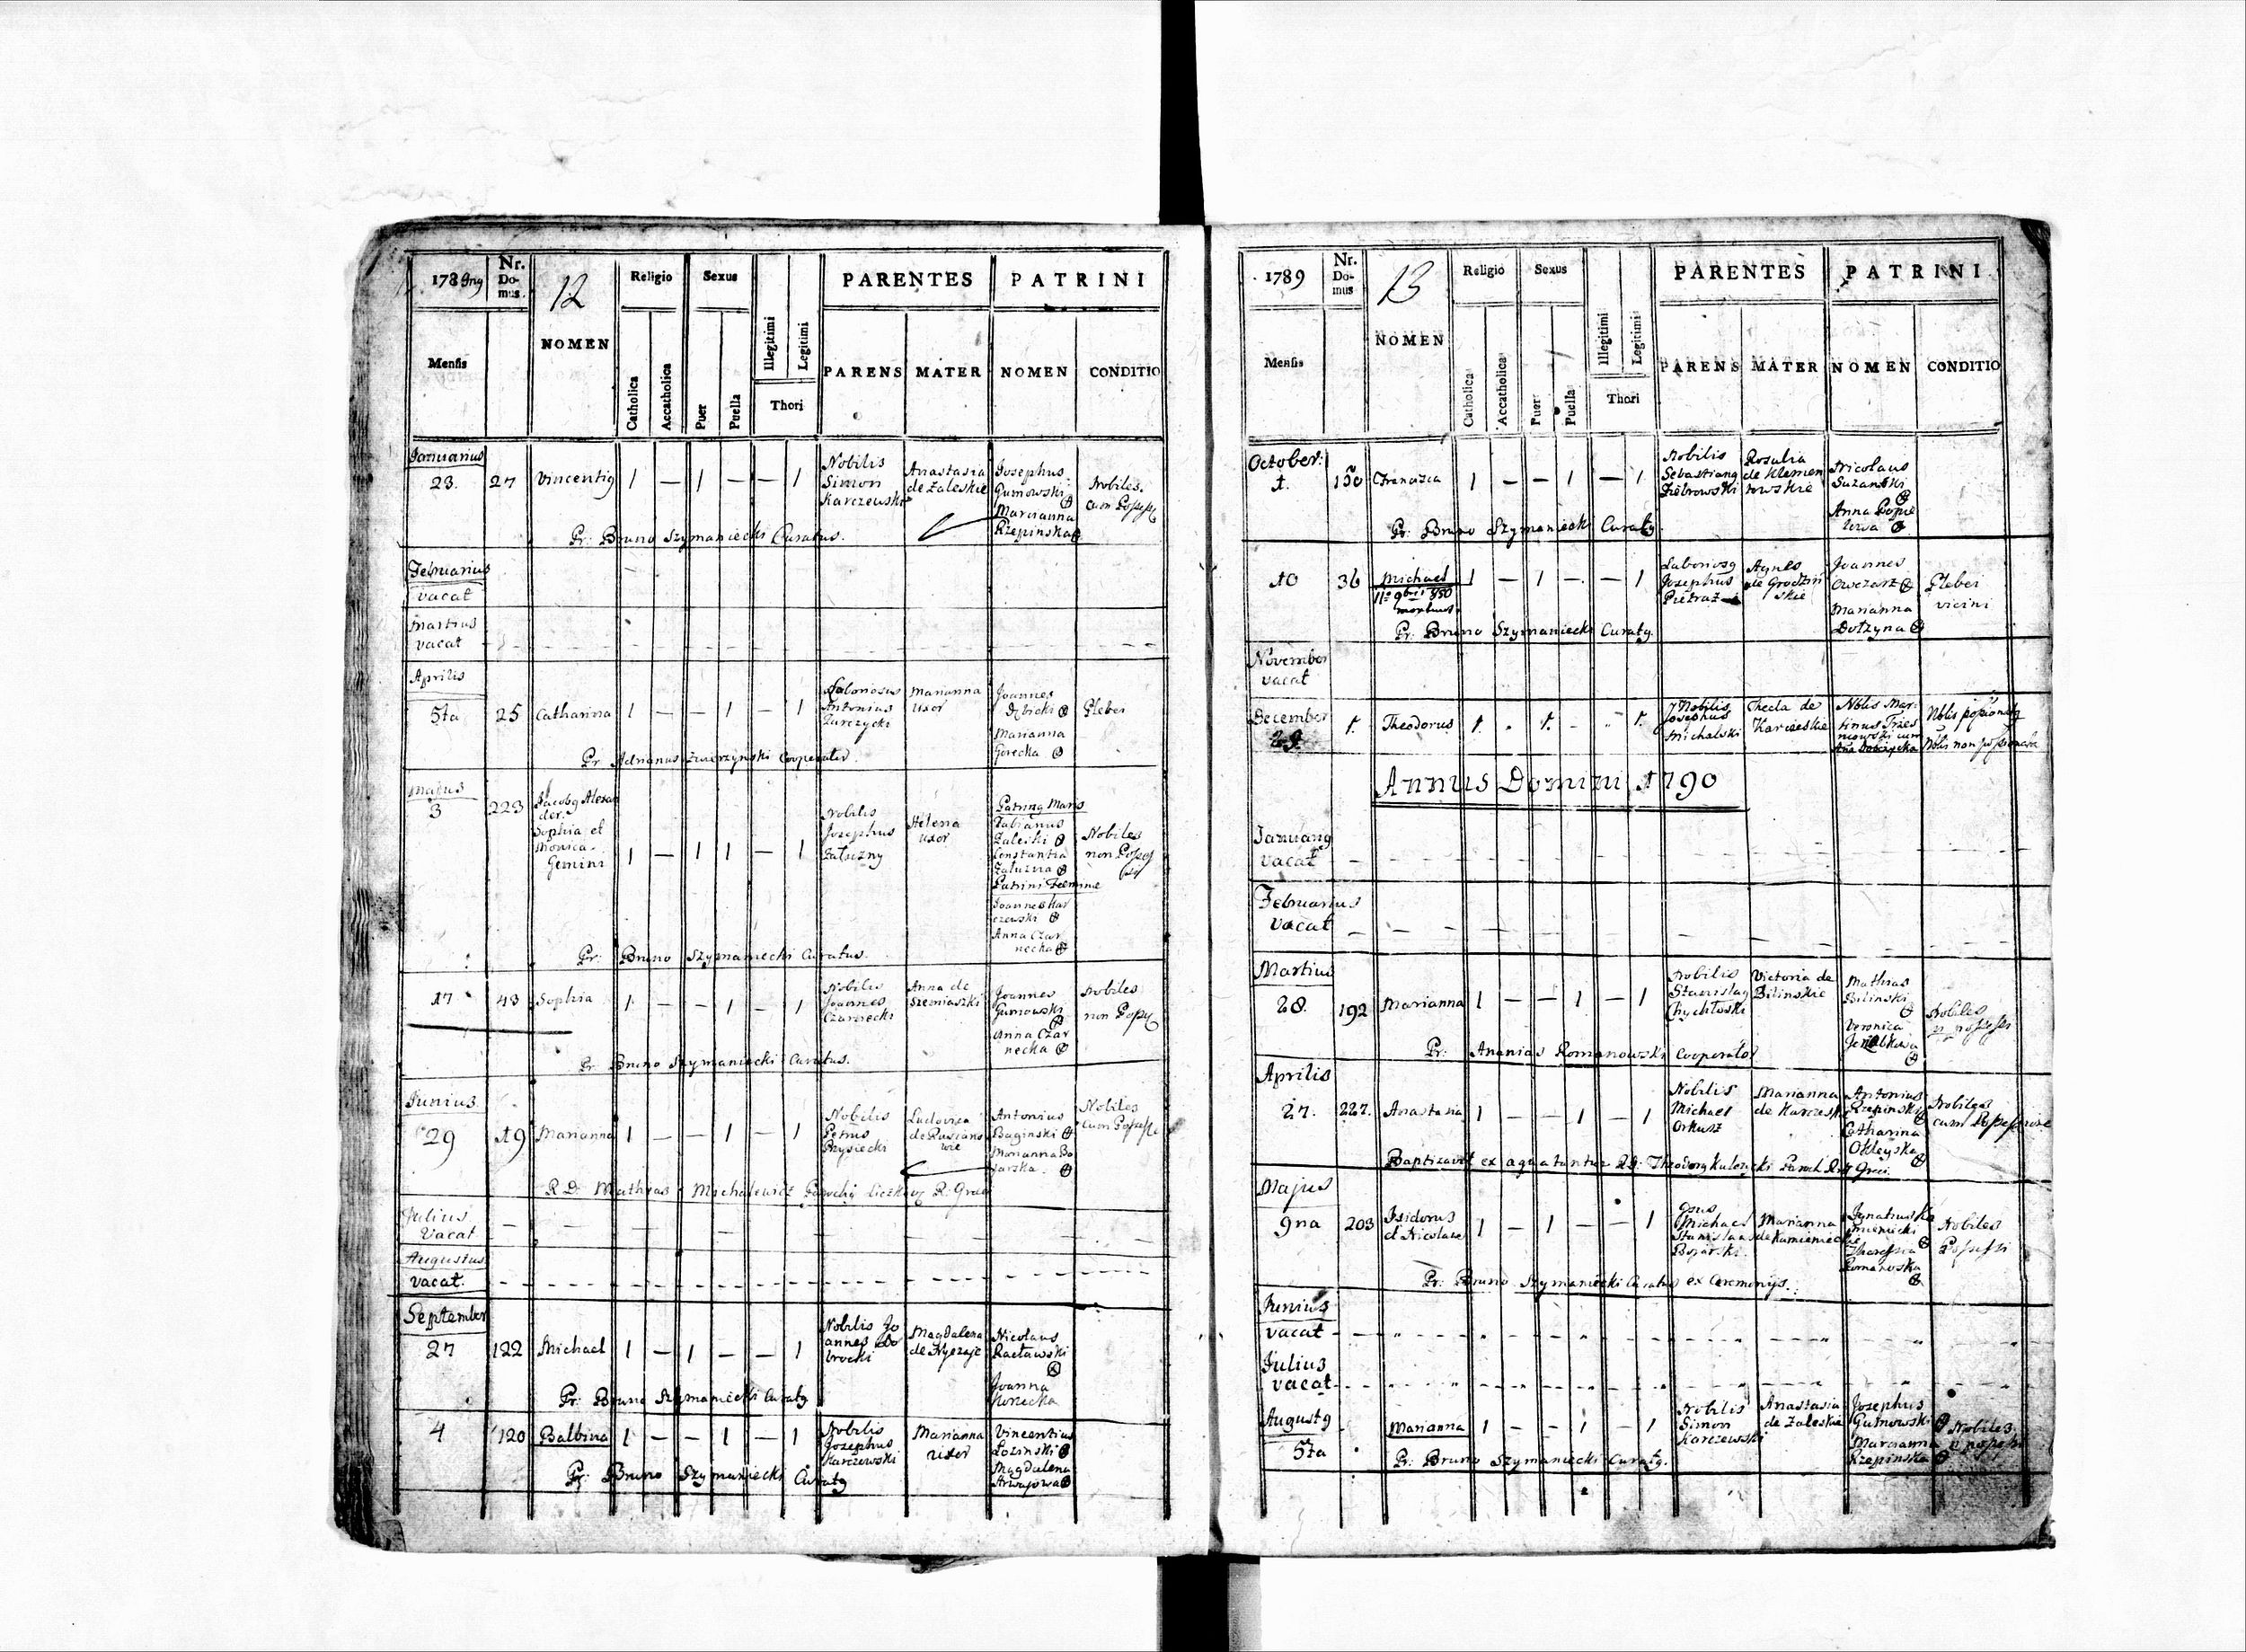 1789ng
Nr. Domus.
12
NOMEN
Religio
Sexus
Illegitimi
Legitimi
Thori
PARENTES
PATRINI
Mensis
Catholica
Accatholica
Puer
Puella
PARENS
MATER
NOMEN
CONDITIO
Januarius
23. 27 Vincentig 1 — 1 — — 1
Nobilis
Simon
Karczewski
Anastasia
de Zaleskie
Josephus
Gumowski
Marcianna
Rzepinska
Nobiles.
cum Possess
Pr: Bruno Szymaniecki Curatus.
Februarius
vacat
Martius
vacat
Aprilis
5ta 25 Catharina 1 — — 1 — 1
Laboriosus
Antonius
Zurczycki
Marianna
Uxor
Joannes
Dębicki
Marianna
Gorecka
Plebei
Pr: Adrianus Zwierzynski Cooperator.
Majus
3 223
Jacobg Alexan
der.
Sophia et
Monica.
Gemini
1 — 1 1 — 1
Nobilis
Josephus
Załuzny
Helena
uxor
Patring Maris
Fabianus
Zaleski
Constantia
Załuzna
Patrini Feminae
Joannes Kar
czewski
Anna Czar
necka
Nobiles
non Posses
Pr: Bruno Szymaniecki Curatus.
17 43 Sophia 1 — — 1 — 1
Nobilis
Joannes
Czarnecki
Anna de
Szemiaszki
Joannes
Gumowski
Anna Czar
necka
Nobiles
non Possess
Pr: Bruno Szymaniecki Curatus.
Junius.
29 19 Marianna 1 — — 1 — 1
Nobilis
Petrus
Przysiecki
Ludovica
Antonius
Baginski
Marianna Bo
jarska.
Nobiles
cum Possess
R. D: Mathias Michalewicz
Julius
Vacat
Augustus
vacat.
September
27 122 Michael 1 — 1 — — 1
Nobilis Jo
annes Do
brocki
Magdalena
Nicolaus
Racławski
Joanna
Korzecka
Pr: Bruno Szymaniecki Curatg
4 120 Balbina 1 — — 1 — 1
Nobilis
Josephus
Karczewski
Marianna
uxor
Vincentius
Łozinski
Magdalena
Pr: Bruno Szymaniecki Curatg
1789
Nr. Domus
13
NOMEN
Religio
Sexus
Illegitimi
Legitimi
Thori
PARENTES
PATRINI
Mensis
Catholica
Accatholica
Puer
Puella
PARENS
MATER
NOMEN
CONDITIO
October:
1. 150 Francisca 1 — — 1 — 1
Nobilis
Sebastiang
Ziebrowski
Rosalia
de Klemen
towskie
Nicolaus
Suzanski
Anna Popie
lowa
Pr: Bruno Szymaniecki Curatg.
10 36 Michael 1 — 1 — — 1
11a 9bris 850
mortuus.
Laboriosg
Josephus
Pietraz
Agnes
de Grodzin
skie
Joannes
Owczarz
Marianna
Dołzyna
Plebei
vicini
Pr: Bruno Szymaniecki Curatg.
November
vacat
December
29. 1. Theodorus 1. 1. 1.
Nobilis
Josephus
Michalski
Thecla de
Karczeskie
Nblis Mar
tinus Trzes
niowski cum
Nblis possionatg
Nblis non possionata
Annus Domini 1790
Januarig
vacat
Februarius
vacat
Martius
28. 192 Marianna 1 — — 1 — 1
Nobilis
Stanislag
Chychłowski
Victoria de
Bilinskie
Mathias
Bilinski
Veronica
Nobiles
Pr: Ananias Romanowski Cooperator
Aprilis
27. 227. Anastasia 1 — — 1 — 1
Nobilis
Michael
Orkusz
Marianna
de Karczeskie
Antonius
Rzepinski
Catharina
Okleyska
Nobiles
cum Possessione
Baptizavit ex aqua tantur RD: Theodorg Kulczycki Paroch Rit Greci.
Majus
9na 203
Isidorus
et Nicolaus
1 — 1 — — 1
Gsus
Michael
Stanislaus
Bojarski.
Marianna
de Kamieniec
Ignatius Ka
mieniecki
Theressia
Romanowska
Nobiles
Possessi
Pr: Bruno Szymaniecki Curatus ex Ceremonijs.
Junius
vacat
Julius
vacat
Augustg
5ta Marianna 1 — — 1 — 1
Nobilis
Simon
Karczewski
Anastasia
de Zaleskie
Josephus
Gumowski
Marcianna
Rzepinska
Nobiles
Pr: Bruno Szymaniecki Curatg.